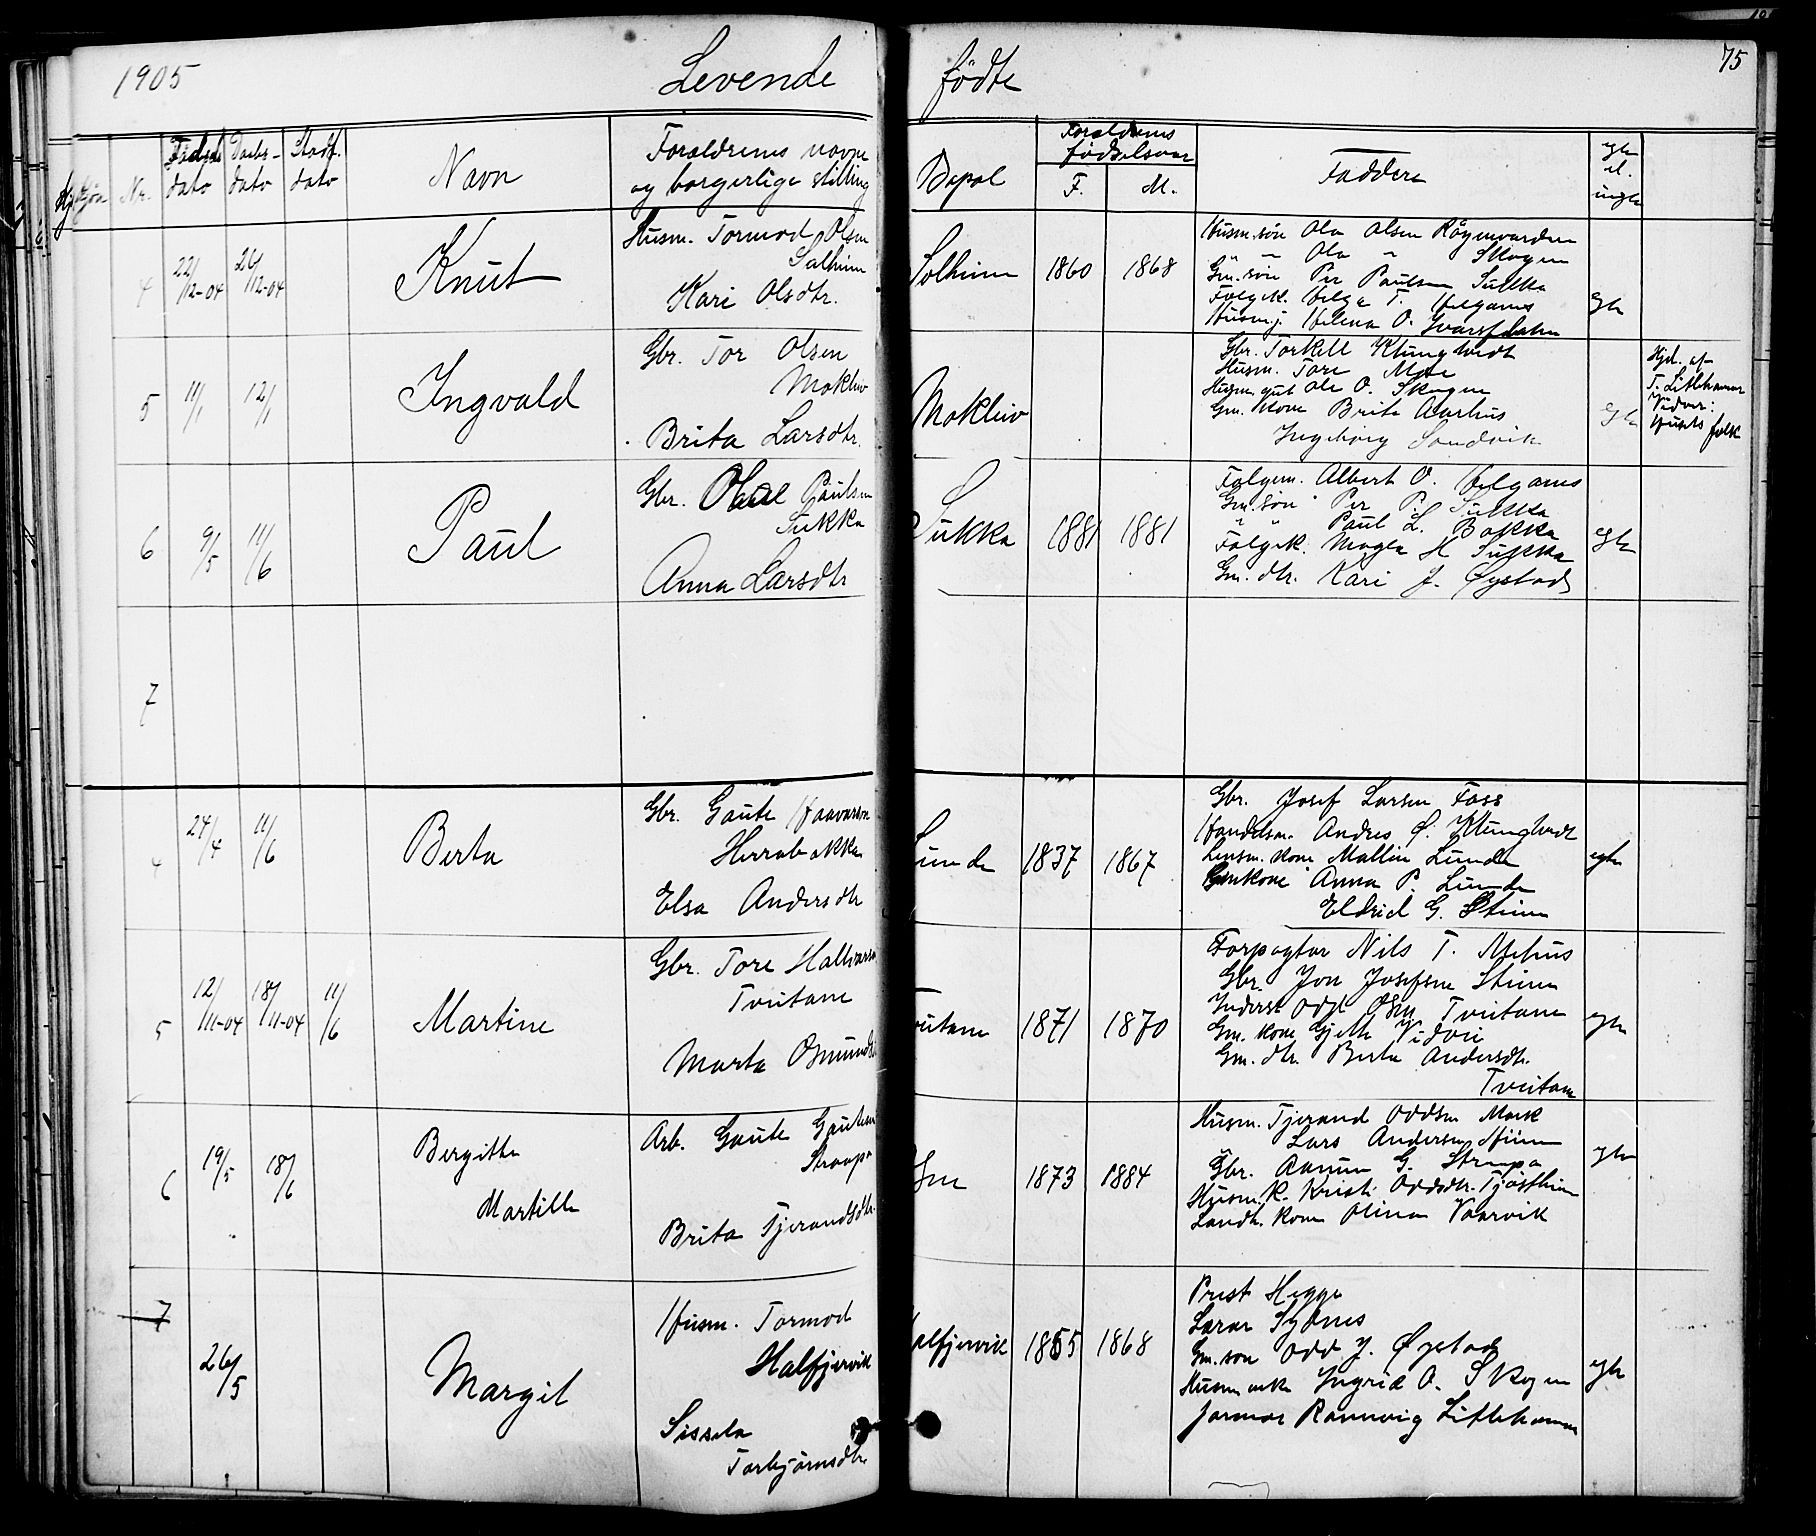 1905 Levende fødte 75
Nr. Fødsels dato Daabs-dato Stadf. dato Navn Forældrenes navne
og borgerlige stilling Bopæl Forældrenes
fødselsaar
F. M. Faddere egte
el.
uegte
4 22/12-04 26/12-04 Knut Husm. Tormod Olsen
Solheim
Kari Olsdtr.
Solheim 1860 1868
Husm.søn Ola Olsen Röynvarden
" " Ola " Skogen
Gm.søn Per Paulsen Sukka
Folgek. Helga T. Helganes
Husm.j. Helena O. Ivarsflaten
egte
5 11/1 12/1 Ingvald Gbr. Tor Olsen
Mokleiv
Brita Larsdtr.
Mokleiv
Gbr. Torkell Klungtvedt
Husm. Tore Moe
Husm.gut Ole O. Skogen
Gm. kone Brita Aarhus
Ingeborg Sandvik
egte
Hjd. af
T. Litlehamar
Vidner:
Husets folk
6 9/5 11/6 Paul Gbr. Olai Paulsen
Sukka
Anna Larsdtr
Sukka 1881 1881
Folgem. Albert O. Helganes
Gm.søn Per P. Sukka
" " Paul L. Bakka
Folgek. Magla H Sukka
Gm. dtr. Kari J. Øystad
egte
7
4 24/4 11/6 Berta Gbr. Gaute Haavarsen
Herrabakka
Elsa Andersdtr
Lunde 1837 1867
Gbr. Josef Larsen Foss
Handelsm. Andres Ø. Klungtvedt
Lensm. kone Mallin Lunde
Gmkone Anna P. Lunde
Eldrid G. Stime
egte
5 12/11-04 18/11-04 11/6 Martine Gbr. Tore Hallvarsen
Tveitane
Marta Osmundsd
Tveitane 1871 1870
Forpagtar Nils T. Mehus
Gbr. Jon Josefsen Stime
Inderst Odd Olsen Tveitane
Gm. kone Gjetle Vidvei
Gm. dtr. Berta Andersdtr.
Tveitane
egte
6 19/5 18/6 Bergitte
Martille
Arb. Gaute Gautesen
Straapa
Brita Tjerandsdtr.
1873 1884
Husm. Tjerand Oddsen Mark
" Lars Andersen
Gbr. Aanun G. Straapa
Husm.k. Kristi Oddsdtr. Tjøstheim
Landh. kone Olina Vaarvik
egte
7 26/5 Margit Husm. Tormod
Halfjervik
Sissela
Torbjørnsdtr.
Halfjervik 1855 1868
Prest Hegge
Lærer Sydnes
Gm.son Odd J. Øystad
Husm enke Ingrid O. Skogen
Jormor Rannveig Litlehamar
egte